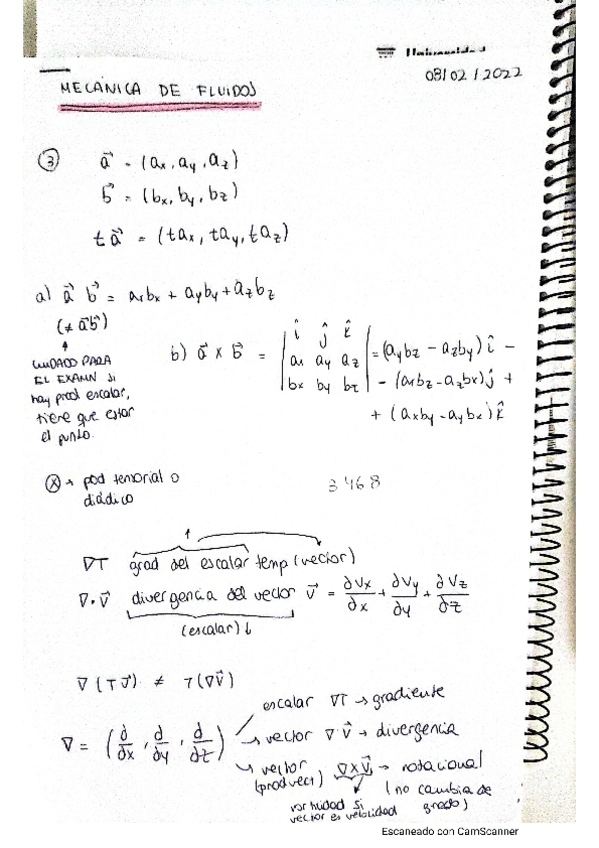 Universidad
08/02/2022
MECÁNICA DE FLUIDOS
③ a⃗ = (ax, ay, az)
b⃗ = (bx, by, bz)
t a⃗ = (tax, tay, taz)
a) a⃗ b⃗ = axbx + ayby + azbz
(≠ a⃗b⃗)
CUIDADO PARA
EL EXAMN si
hay prod escalar,
tiene que estar
el punto.
b) a⃗ x b⃗ = | î ĵ k̂ |
| ax ay az | = (aybz - azby) î -
| bx by bz | - (axbz - azbx) ĵ +
+ (axby - aybx) k̂
ⓧ → pod tensorial o
diádico
3 4 6 8
∇T grad del escalar temp (vector)
∇·v⃗ divergencia del vector v⃗ = ∂Vx/∂x + ∂Vy/∂y + ∂Vz/∂z
(escalar) ↓
∇(Tv⃗) ≠ T(∇v⃗)
∇ = (∂/∂x, ∂/∂y, ∂/∂z)
escalar ∇T → gradiente
→ vector ∇·v⃗ → divergencia
→ vector ∇×v⃗ → rotacional
(product)
(no cambia de
grado)
vorticidad si
vector es velocidad
Escaneado con CamScanner